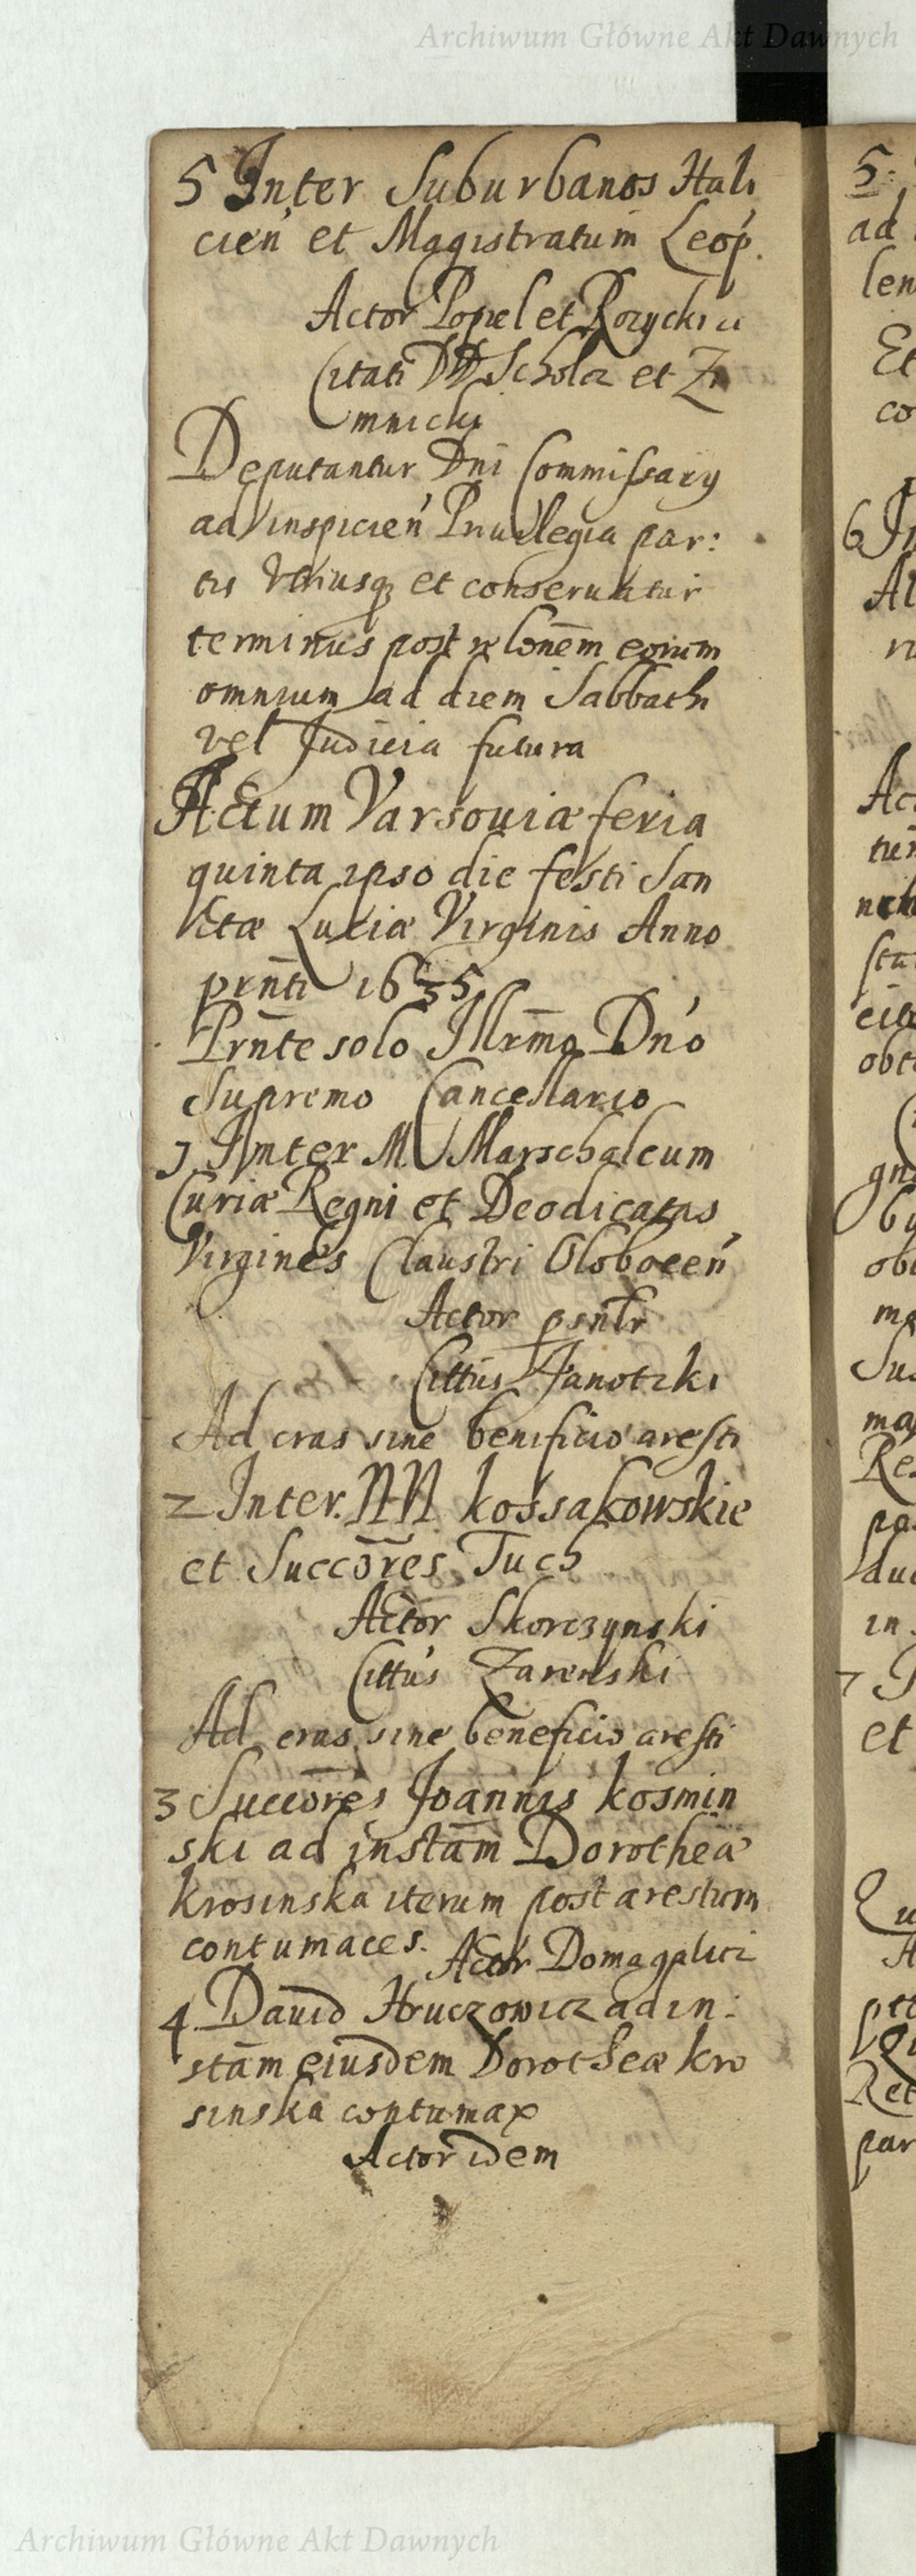 Archiwum Główne Akt Dawnych
5 Inter Suburbanos Hali
cień et Magistratum Leop.
Actor Popiel et Rozycki
Citati DD Scholz et Zi
mnicki
Deputantur Dni Commissarÿ
ad inspicień Privilegia par:
tis utriusq et conservatur
terminus post relonēm eorum
omnium ad diem Sabbathi
vel Judicia futura
Actum Varsoviæ feria
quinta ipso die festi San
ctæ Luciæ Virginis Anno
prnti 1635
Prnte solo Illrmo Dno
Supremo Cancellario
1 Inter M Marschalcum
Curiæ Regni et Deodicatas
Virgines Claustri Oloboceń
Actor psntr
Cittus Janotzki
Ad cras sine benificio aresti
2 Inter NN Kossakowskie
et Succōres Tuch
Actor Skorczynski
Cittus Zarenski
Ad cras sine beneficio aresti
3 Succōres Joannis Kosmin
ski ad instām Dorotheæ
Krosinska iterum post arestum
contumaces. Actor Domagalici
4 David Hruczowicz ad in:
stām eiusdem Dorotheæ Kro
sinska contumax
Actor idem
Archiwum Główne Akt Dawnych